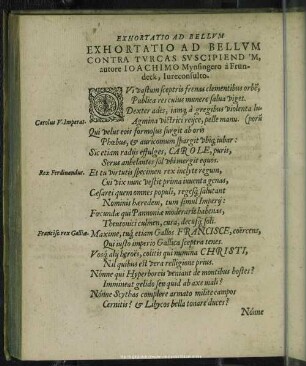 EXHORTATIO AD BELLVM
EXHORTATIO AD BELLVM
CONTRA TVRCAS SVSCIPIENDVM,
autore IOACHIMO Mynsingero à Frun-
deck, Iureconsulto.
QVi vastum sceptris frenas clementibus orbẽ,
Publica res cuius munere salua viget.
Dexter ades, iamq; à gregibus violenta lu-
Agmina victrici reijce, pelle manu. (porũ
Carolus V. Imperat.
Qui velut exit formosus surgit ab oris
Phœbus, & auricomum spargit vbiq; iubar:
Sic etiam radijs effulges, CAROLE, puris,
Serus anhelantes sol vbi mergit equos.
Rex Ferdinandus.
Et tu virtutis specimen rex inclyte regum,
Cui vix nunc vestit prima iuuenta genas,
Cæsaris quem omnes populi, reges&
Nominis heredem, tum simul Imperij:
Fœcunda qui Pannoniæ moderaris habenas,
Theutonici culmen, cura, decusq; soli.
Franciscus rex Galliæ.
Maxime, tuq; etiam Gallos FRANCISCE, coërcens,
Qui iusto imperio Gallica sceptra tenes.
Vosq; alij heroës, coitis qui numina CHRISTI,
Nil quibus est vera relligione prius.
Nónne qui Hyperboreis veniant de montibus hostes?
Immineat gelido seu quid ab axe mali?
Nónne Scythas complere armato milite campos
Cernitis? & Libycos bella tonare duces?
Nónne